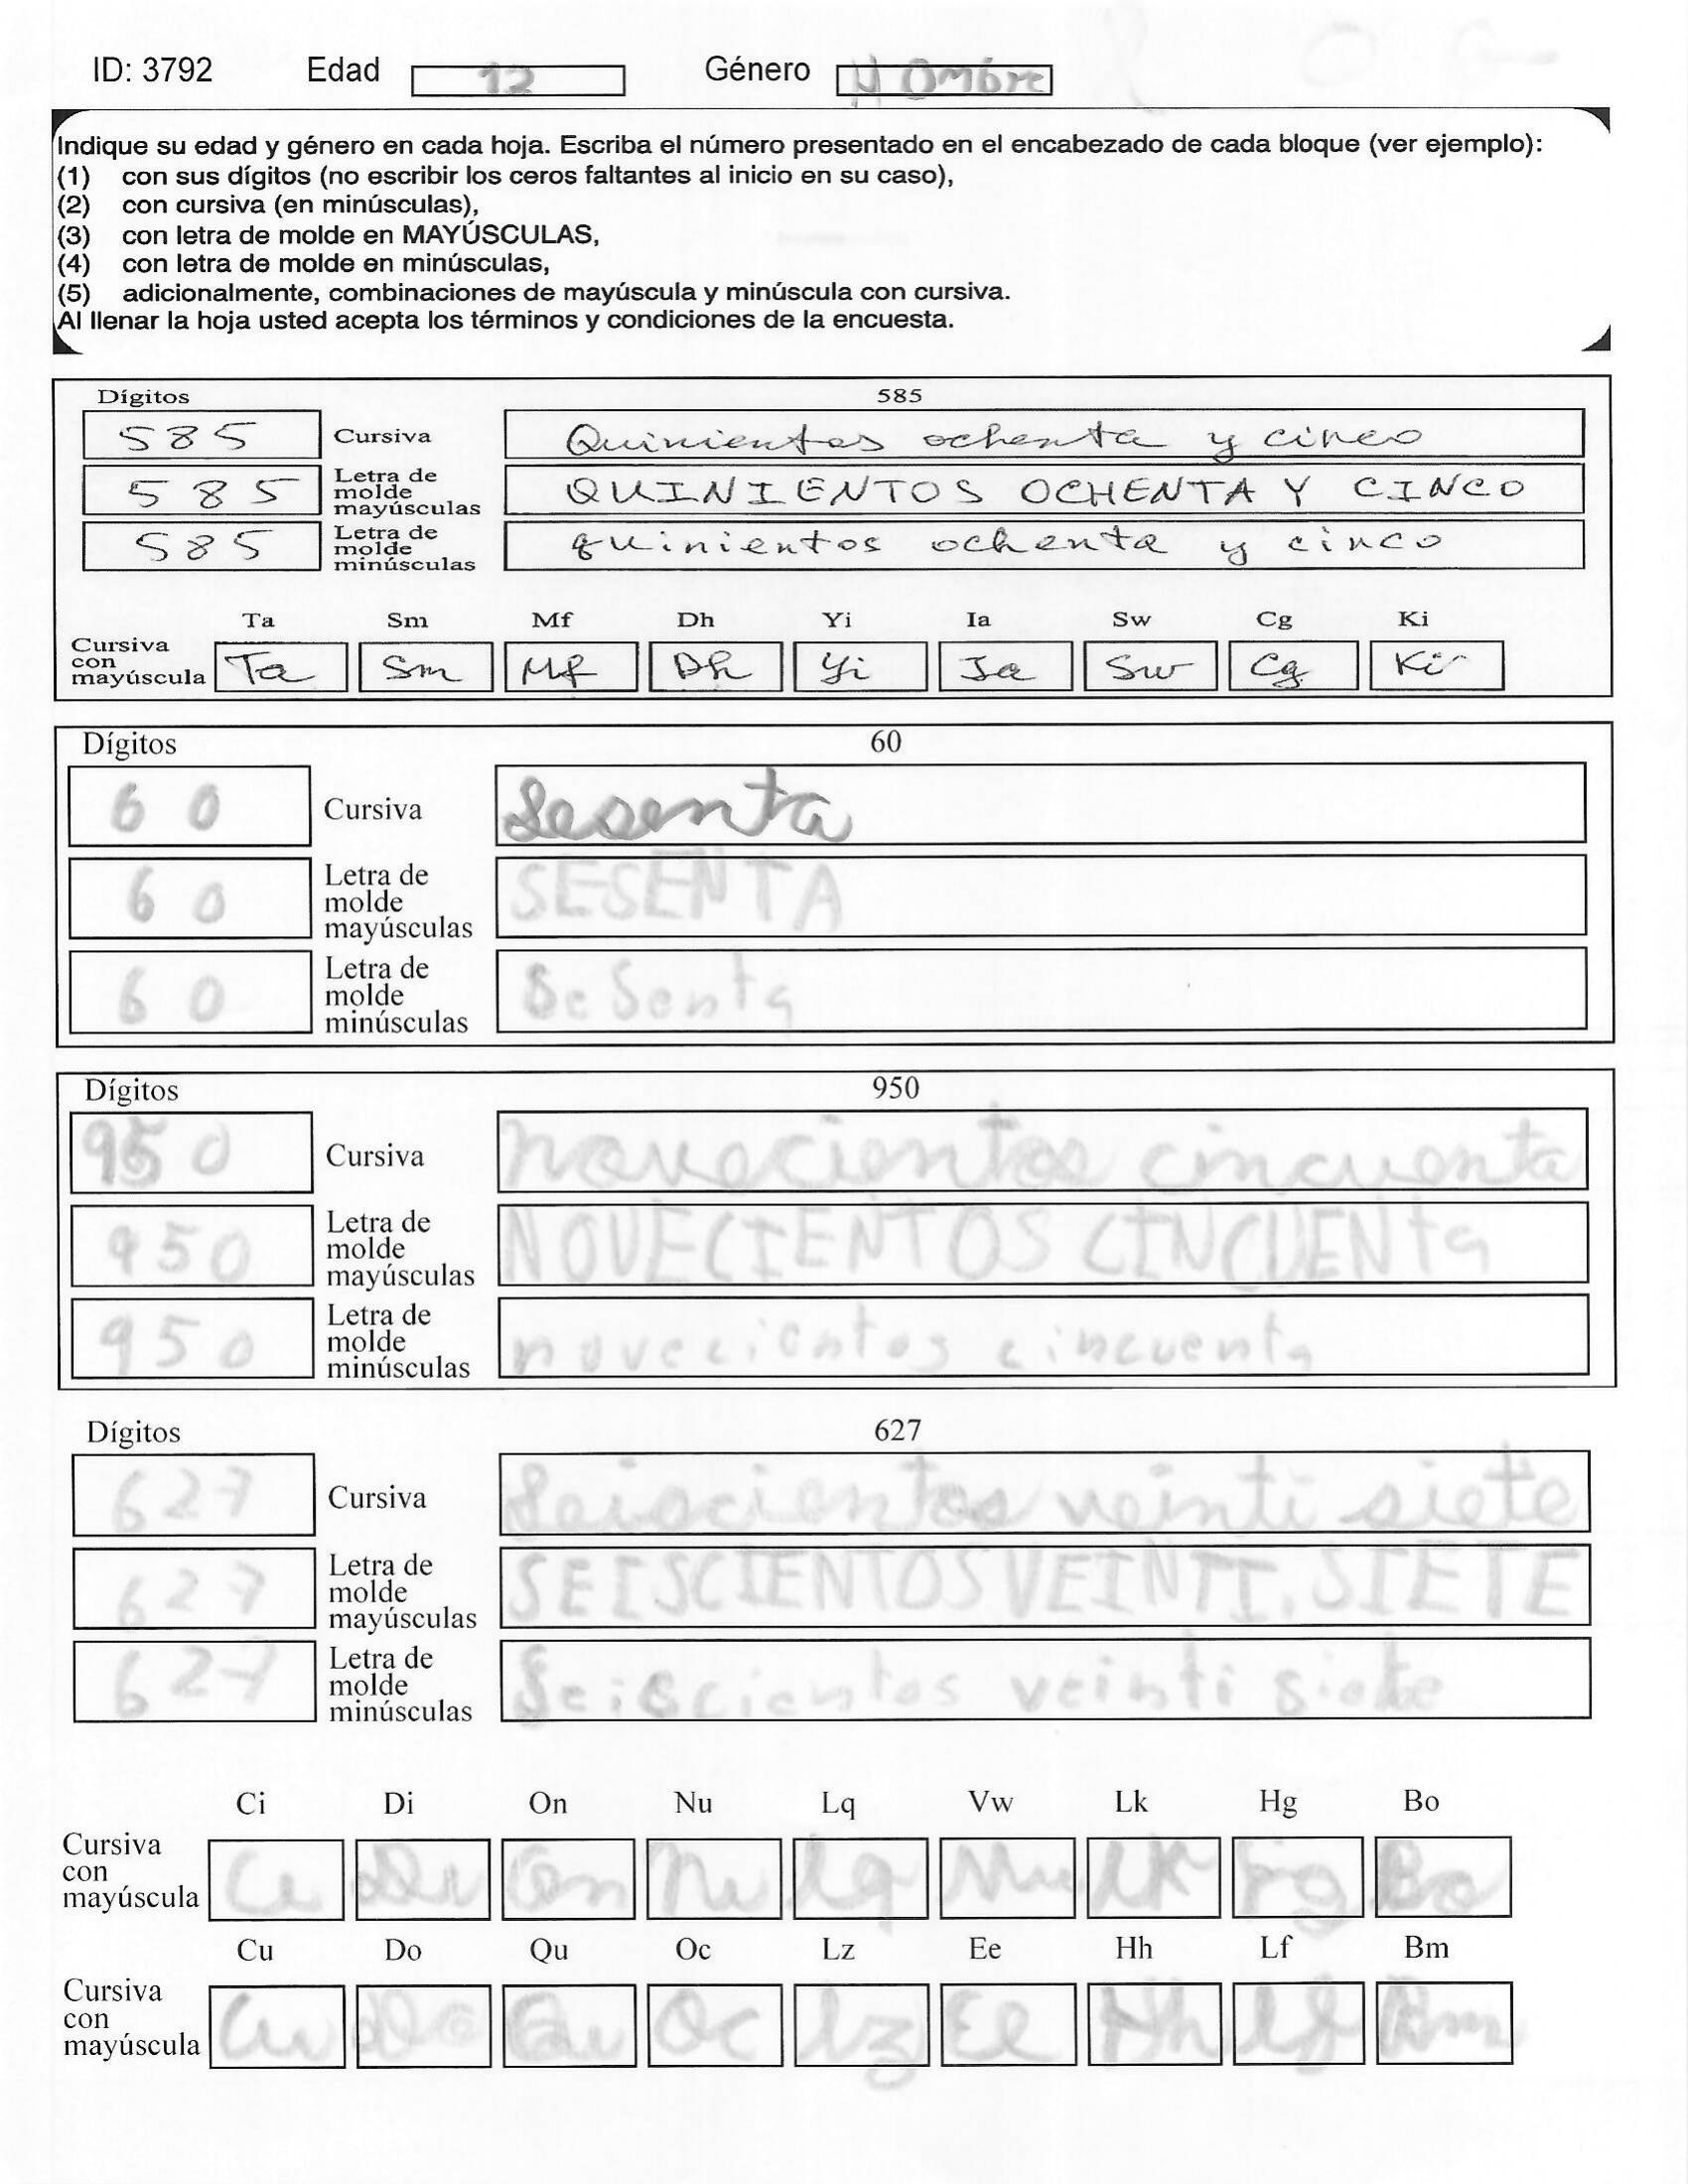 ID: 3792 Edad 12 Género HOmbre
Indique su edad y género en cada hoja. Escriba el número presentado en el encabezado de cada bloque (ver ejemplo):
(1) con sus dígitos (no escribir los ceros faltantes al inicio en su caso),
(2) con cursiva (en minúsculas),
(3) con letra de molde en MAYÚSCULAS,
(4) con letra de molde en minúsculas,
(5) adicionalmente, combinaciones de mayúscula y minúscula con cursiva.
Al llenar la hoja usted acepta los términos y condiciones de la encuesta.
Dígitos 585
585 Cursiva Quinientos ochenta y cinco
585 Letra de molde mayúsculas QUINIENTOS OCHENTA Y CINCO
585 Letra de molde minúsculas quinientos ochenta y cinco
Ta Sm Mf Dh Yi Ia Sw Cg Ki
Cursiva con mayúscula Ta Sm Mf Dh Yi Ia Sw Cg Ki
Dígitos 60
60 Cursiva Sesenta
60 Letra de molde mayúsculas SESENTA
60 Letra de molde minúsculas SeSenta
Dígitos 950
950 Cursiva novecientos cincuenta
950 Letra de molde mayúsculas NOVECIENTOS CINCUENta
950 Letra de molde minúsculas novecientos cincuenta
Dígitos 627
627 Cursiva Seiscientos veinti siete
627 Letra de molde mayúsculas SEISCIENTOS VEINTI SIETE
627 Letra de molde minúsculas Seiscientos veinti siete
Ci Di On Nu Lq Vw Lk Hg Bo
Cursiva con mayúscula Ci Di On Nu Lq Lk Hg Bo
Cu Do Qu Oc Lz Ee Hh Lf Bm
Cursiva con mayúscula Cu Do Qu Oc Lz Ee Hh Lf Bm